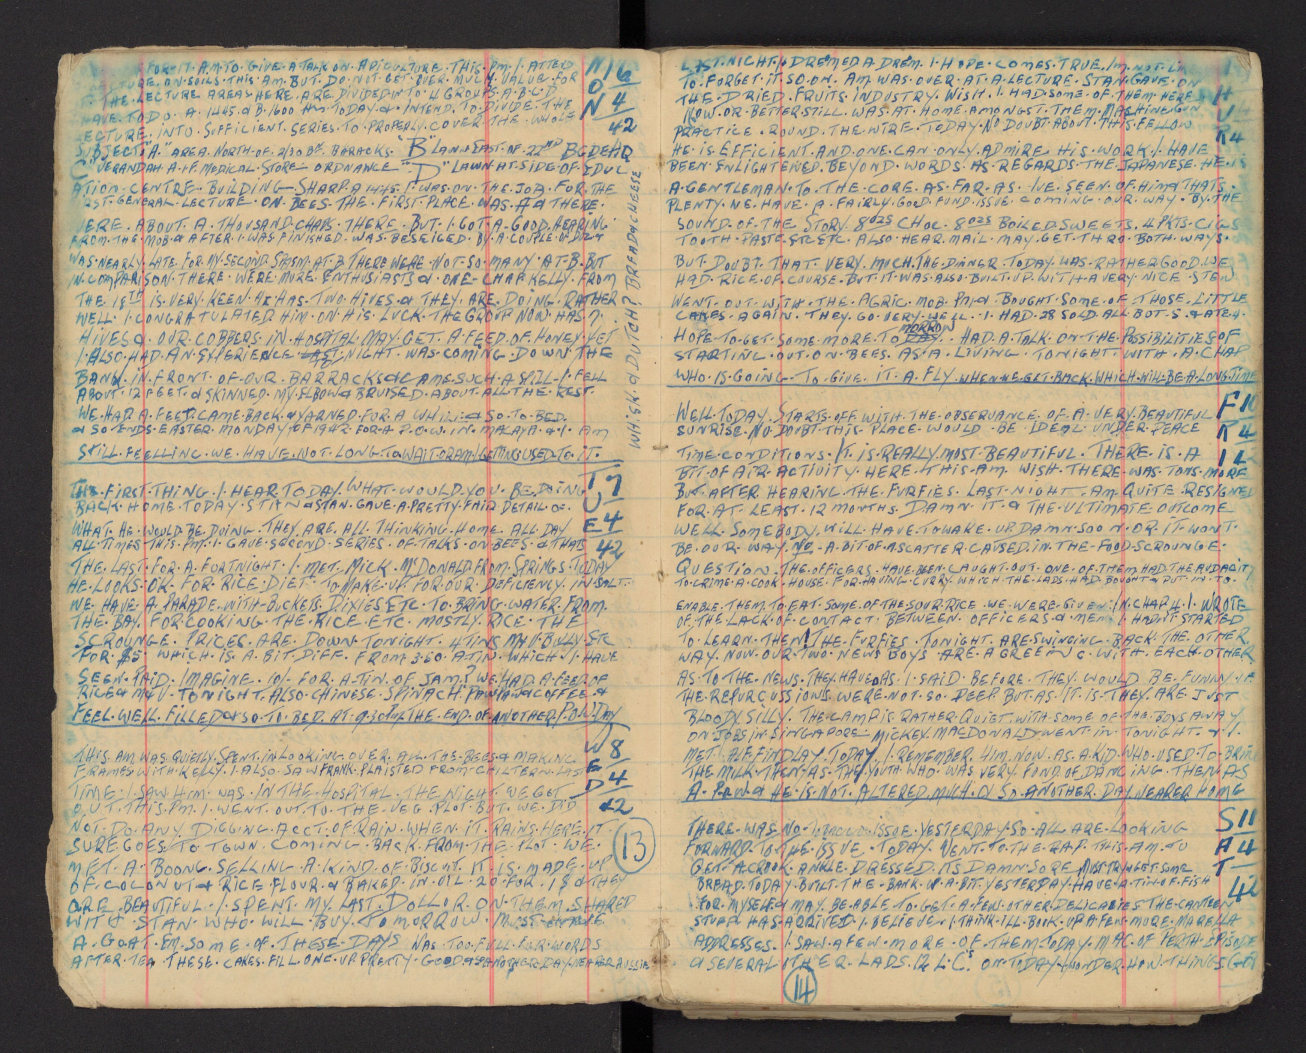 FOR·IT·A.M·TO·GIVE·A·TALK·ON·APICULTURE·THIS·PM·I·ATTEND
ON·SOILS·THIS·AM·BUT·DO·NOT·GET·OVER·MUCH·VALUE·FOR
THE·LECTURE AREAS·HERE·ARE·DIVIDED·INTO·4 GROUPS·A·B·C·D
TO·DO·A·1445·&·B·1600·HRS·TODAY·&·INTEND·TO·DIVIDE·THE
LECTURE·INTO·SUFFICIENT·SERIES·TO·PROPERLY·COVER·THE·WHOLE
SUBJECT "A" AREA·NORTH·OF·2/30 BN·BARACKS· B LAWN·EAST·OF·22ND BGDEHQ
"C" VERANDAH·A·I·F·MEDICAL·STORE ORDNANCE "D" LAWN·AT·SIDE·OF·EDUC
ATION·CENTRE·BUILDING·SHARP·AT·1445·I·WAS·ON·THE·JOB·FOR·THE
1ST·GENERAL·LECTURE·ON·BEES·THE·FIRST·PLACE·WAS·A·&·THERE·
WERE·ABOUT·A·THOUSAND·CHAPS·THERE·BUT·I·GOT·A·GOOD·HEARING
FROM·THE·MOB·&·AFTER·I·WAS·FINISHED·WAS·BESEIGED·BY·A·COUPLE·OF·DOZ·&
WAS·NEARLY·LATE·FOR·MY·SECOND·SPASM·AT·B THERE WERE·NOT·SO·MANY·AT·B·BUT
IN·COMPARISON·THERE·WERE·MORE·ENTHUSIASTS·&·ONE·CHAP·KELLY·FROM
THE IS·VERY·KEEN·HE·HAS·TWO·HIVES·&·THEY·ARE·DOING·RATHER
WELL·I·CONGRATULATED HIM·ON·HIS·LUCK·THE·GROUP·NOW·HAS·7·
HIVES·&·OUR·COBBERS·IN·HOSPITAL·MAY·GET·A·FEED·OF·HONEY·YET
I·ALSO·HAD·AN·EXPERIENCE·LAST·NIGHT·WAS·COMING·DOWN·THE
BANK·IN·FRONT·OF·OUR·BARRACKS·&·CAME·SUCH·A·SPILL·I·FELL
ABOUT·12 FEET·&·SKINNED·MY·ELBOW·&·BRUISED·ABOUT·ALL·THE·REST·
WE·HAD·A·FEED·CAME·BACK·&·YARNED·FOR·A·WHILE·&·SO·TO·BED·
&·SO·ENDS·EASTER·MONDAY·OF·1942·FOR·A·P·O·W·IN·MALAYA·&·I·AM
STILL·FEELLING·WE·HAVE·NOT·LONG·TO·WAIT·OR·AM·I·GETTING·USED·TO·IT·
M 6
O
N 4
42
WHISK·&·DUTCH? BREAD·&·CHEESE
THE·FIRST·THING·I·HEAR·TODAY·WHAT·WOULD·YOU·BE·DOING
BACK·HOME·TODAY·STAN·&·STAN·GAVE·A·PRETTY·FAIR·DETAIL·OF·
WHAT·HE·WOULD·BE·DOING·THEY·ARE·ALL·THINKING·HOME·ALL·DAY
ALL·TIMES·THIS·PM·I·GAVE·SECOND·SERIES·OF·TALKS·ON·BEES·&·THATS
THE·LAST·FOR·A·FORTNIGHT·I·MET·MICK·McDONALD·FROM·SPRINGS·TODAY
HE·LOOKS·OK·FOR·RICE·DIET·TO·MAKE·UP·FOR·OUR·DEFICIENCY·IN·SALT·
WE·HAVE·A·PARADE·WITH·BUCKETS·DIXIES·ETC·TO·BRING·WATER·FROM·
THE·BAY·FOR·COOKING·THE·RICE·ETC·MOSTLY·RICE·THE
SCROUNGE·PRICES·ARE·DOWN·TONIGHT·4 TINS·M&V·BULLY·ETC
FOR·$5·WHICH·IS·A·BIT·DIFF·FROM·3·50·A·TIN·WHICH·I·HAVE
SEEN·PAID·IMAGINE·10/-·FOR·A·TIN·OF·JAM? WE·HAD·A·FEED·OF
RICE·&·M&V·TONIGHT·ALSO·CHINESE·SPINACH·&·COFFEE·&
FEEL·WELL·FILLED·&·SO·TO·BED·AT·9·30·THE·END·OF·ANOTHER·P·O·W·DAY
T 7
U
E 4
42
THIS·AM·WAS·QUIETLY·SPENT·IN·LOOKING·OVER·ALL·THE·BEES·&·MAKING
FRAMES·WITH·KELLY·I·ALSO·SAW·FRANK·PLAISTED·FROM·CHILTERN·LAST
TIME·I·SAW·HIM·WAS·IN·THE·HOSPITAL·THE·NIGHT·WE·GOT
OUT·THIS·PM·I·WENT·OUT·TO·THE·VEG·PLOT·BUT·WE·DID
NOT·DO·ANY·DIGGING·ACCT·OF·RAIN·WHEN·IT·RAINS·HERE·IT
SURE·GOES·TO·TOWN·COMING·BACK·FROM·THE·PLOT·WE·
MET·A·BOONG·SELLING·A·KIND·OF·BISCUIT·IT·IS·MADE·UP
OF·COCONUT·&·RICE·FLOUR·&·BAKED·IN·OIL·20·FOR·1$·&·THEY
ARE·BEAUTIFUL·I·SPENT·MY·LAST·DOLLOR·ON·THEM·SHARED
WITH·STAN·WHO·WILL·BUY·TOMORROW·
A·GOAT·EM·SOME·OF·THESE·DAYS WAS·TOO·FULL·FOR·WORDS
AFTER·TEA·THESE·CAKES·FILL·ONE·UP·PRETTY·GOOD·&·ANOTHER·DAY·NEARER·AUSSIE
W 8
E
D 4
42
13
LAST·NIGHT·I·DREMED·A·DREM·I·HOPE·COMES·TRUE·IM·NOT·
TO·FORGET·IT·SO·ON·AM·WAS·OVER·AT·A·LECTURE·STAN·GAVE·ON
THE·DRIED·FRUITS·INDUSTRY·WISH·I·HAD·SOME·OF·THEM·HERE
NOW·OR·BETTER·STILL·WAS·AT·HOME·AMONGST·THEM·MACHINEGUN
PRACTICE·ROUND·THE·WIRE·TODAY·NO·DOUBT·ABOUT·THIS·FELLOW
HE·IS·EFFICIENT·AND·ONE·CAN·ONLY·ADMIRE·HIS·WORK·I·HAVE
BEEN·ENLIGHTENED·BEYOND·WORDS·AS·REGARDS·THE·JAPANESE·HE·IS
A·GENTLEMAN·TO·THE·CORE·AS·FAR·AS·IVE·SEEN·OF·HIM·&·THATS·
PLENTY·WE·HAVE·A·FAIRLY·GOOD·FUND·ISSUE·COMING·OUR·WAY·BY·THE
SOUND·OF·THE·STORY·8 OZS CHOC·8 OZS BOILED·SWEETS·4·PKTS·CIGS
TOOTH·PASTE·ETC·ETC·ALSO·HEAR·MAIL·MAY·GET·THRO·BOTH·WAYS·
BUT·DOUBT·THAT·VERY·MUCH·THE·DINNER·TODAY·WAS·RATHER·GOOD·WE
HAD·RICE·OF·COURSE·BUT·IT·WAS·ALSO·BUILT·UP·WITH·A·VERY·NICE·STEW
WENT·OUT·WITH·THE·AGRIC·MOB·PM·&·BOUGHT·SOME·OF·THOSE·LITTLE
CAKES·AGAIN·THEY·GO·VERY·WELL·I·HAD·28·SOLD·ALL·BUT·5·&·ATE·4·
HOPE·TO·GET·SOME·MORE·TO MORROW HAD·A·TALK·ON·THE·POSSIBILITIES·OF
STARTING·OUT·ON·BEES·AS·A·LIVING·TONIGHT·WITH·A·CHAP
WHO·IS·GOING·TO·GIVE·IT·A·FLY·WHEN·WE·GET·BACK·WHICH·WILL·BE·A·LONG·TIME
H
U
R 4
WELL·TODAY·STARTS·OFF·WITH·THE·OBSERVANCE·OF·A·VERY·BEAUTIFUL
SUNRISE·NO·DOUBT·THIS·PLACE·WOULD·BE·IDEAL·UNDER·PEACE
TIME·CONDITIONS·IT·IS·REALLY·MOST·BEAUTIFUL·THERE·IS·A
BIT·OF·AIR·ACTIVITY·HERE·THIS·AM·WISH·THERE·WAS·TONS·MORE
BUT·AFTER·HEARING·THE·FURFIES·LAST·NIGHT·AM·QUITE·RESIGNED
FOR·AT·LEAST·12 MONTHS·DAMN·IT·&·THE·ULTIMATE·OUTCOME
WELL·SOMEBODY·WILL·HAVE·TO·WAKE·UP·DAMN·SOON·OR·IT·WONT·
BE·OUR·WAY·NO·A·BIT·OF·A·SCATTER·CAUSED·IN·THE·FOOD·SCROUNGE·
QUESTION·THE·OFFICERS·HAVE·BEEN·CAUGHT·OUT·ONE·OF·THEM·HAD·THE·AUDACITY
TO·CRIME·A·COOK·HOUSE·FOR·HAVING·CURRY·WHICH·THE·LADS·HAD·BOUGHT·&·PUT·IN·TO·
ENABLE·THEM·TO·EAT·SOME·OF·THE·SOUR·RICE·WE·WERE·GIVEN·IN·CHAP·4·I·WROTE
OF·THE·LACK·OF·CONTACT·BETWEEN·OFFICERS·&·MEN·I·HADNT·STARTED
TO·LEARN·THEN! THE·FURFIES·TONIGHT·ARE·SWINGING·BACK·THE·OTHER
WAY·NOW·OUR·TWO·NEWS·BOYS·ARE·AGREEING·WITH·EACH·OTHER
AS·TO·THE·NEWS·THEY·HAVE·AS·I·SAID·BEFORE·THEY·WOULD·BE·FUNNY·IF
THE·REPURCUSSIONS·WERE·NOT·SO·DEEP·BUT·AS·IT·IS·THEY·ARE·JUST
BLOODY·SILLY·THE·CAMP·IS·RATHER·QUIET·WITH·SOME·OF·THE·BOYS·AWAY·
ON·JOBS·IN·SINGAPORE·MICKEY·MACDONALD·WENT·IN·TONIGHT·&·I·
MET·ALF·FINDLAY·TODAY·I·REMEMBER·HIM·NOW·AS·A·KID·WHO·USED·TO·BRING
THE·MILK·THEN·AS·THE·YOUTH·WHO·WAS·VERY·FOND·OF·DANCING·THEN·AS
A·P·O·W·&·HE·IS·NOT·ALTERED·MUCH·&·SO·ANOTHER·DAY·NEARER·HOME
F 10
R 4
I 42
THERE·WAS·NO·ISSUE·YESTERDAY·SO·ALL·ARE·LOOKING
FORWARD·TO·THE·ISSUE·TODAY·WENT·TO·THE·RAP·THIS·AM·TO
GET·A·CROOK·ANKLE·DRESSED·ITS·DAMN·SORE·MUST·TRY·&·GET·SOME
BREAD·TODAY·BUILT·THE·BANK·UP·A·BIT·YESTERDAY·HAVE·A·TIN·OF·FISH
FOR·MYSELF·&·MAY·BE·ABLE·TO·GET·A·FEW·OTHER·DELICACIES·THE·CANTEEN
STUFF·HAS·ARRIVED·I·BELIEVE·I·THINK·ILL·BOOK·UP·A·FEW·MORE
ADDRESSES·I·SAW·A·FEW·MORE·OF·THEM·TODAY·MAC·OF·PERTH·EPISODE
&·SEVERAL·OTHER·LADS·12 L·C'S ON·TODAY·WONDER·HOW·THINGS·
S 11
A 4
T
42
14